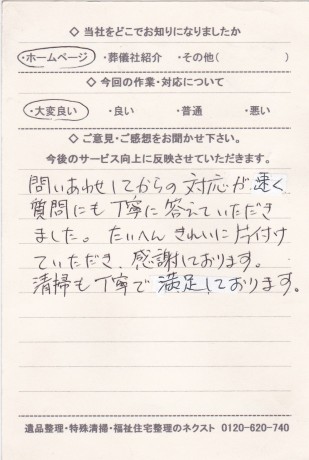 ◇ 当社をどこでお知りになりましたか
・ホームページ ・葬儀社紹介 ・その他(　　　)
◇ 今回の作業・対応について
・大変良い ・良い ・普通 ・悪い
◇ ご意見・ご感想をお聞かせ下さい。
今後のサービス向上に反映させていただきます。
問いあわせしてからの対応が速く
質問にも丁寧に答えていただき
ました。たいへんきれいに片付け
ていただき、感謝しております。
清掃も丁寧で満足しております。
遺品整理・特殊清掃・福祉住宅整理のネクスト 0120-620-740